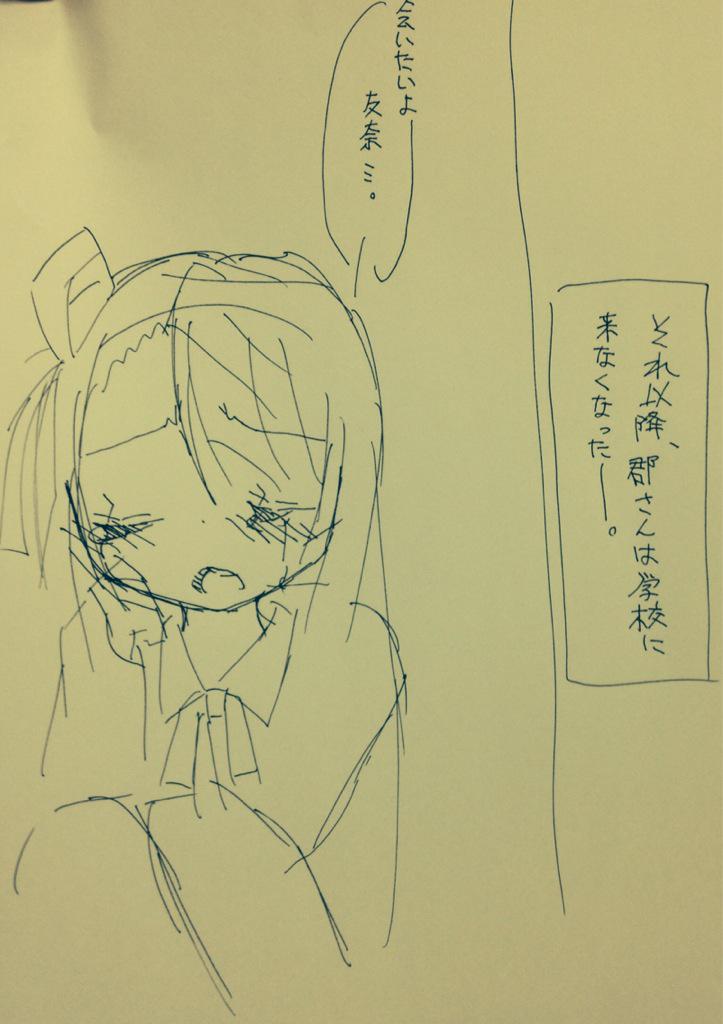 それ以降、郡さんは学校に
来なくなった―。
会いたいよ―
友奈ミ。